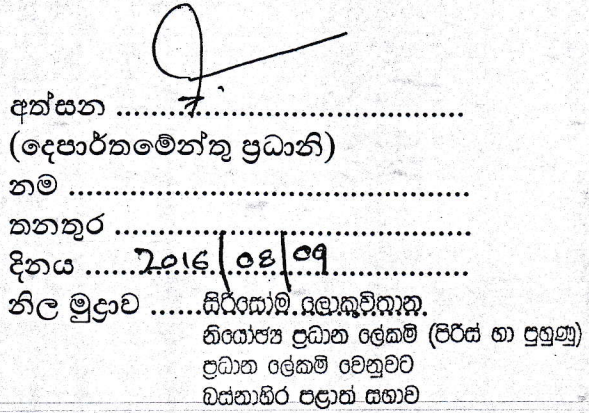 අත්සන ................................................
(දෙපාර්තමේන්තු ප්‍රධානි)
නම .......................................................
තනතුර ................................................
දිනය ......2016/08/09......................
නිල මුද්‍රාව ......සිරිසෝම ලොකුවිතාන
නියෝජ්‍ය ප්‍රධාන ලේකම් (පිරිස් හා පුහුණු)
ප්‍රධාන ලේකම් වෙනුවට
බස්නාහිර පළාත් සභාව